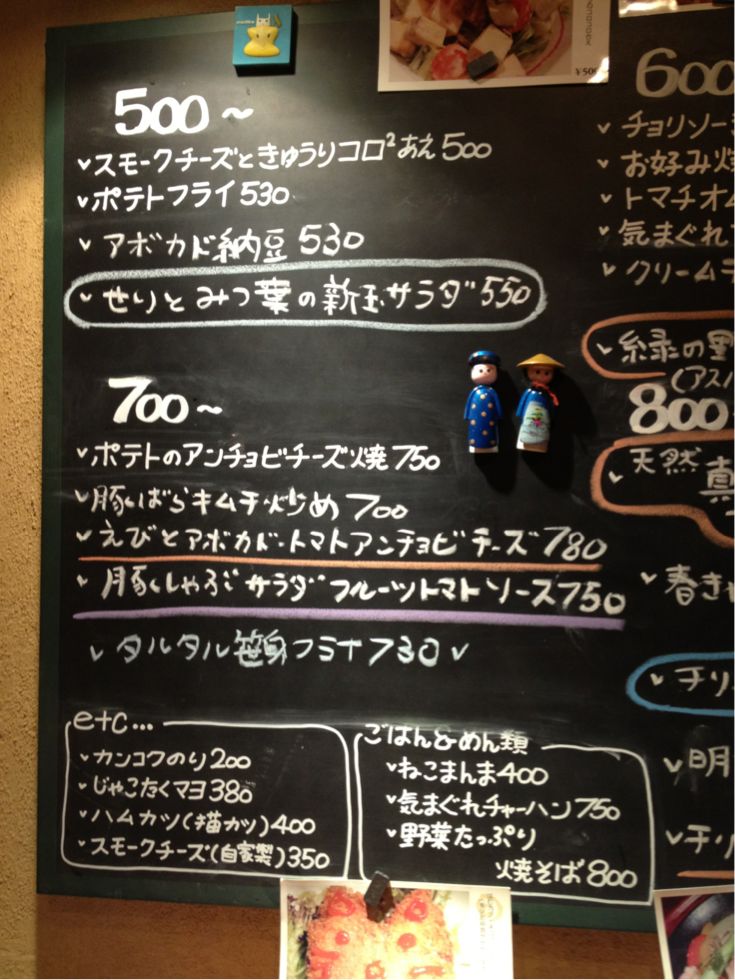 500～
スモークチーズときゅうりコロ²あえ500
ポテトフライ530
アボカド納豆530
せりとみつ葉の新玉サラダ550
700～
ポテトのアンチョビチーズ焼750
豚ばらキムチ炒め700
えびとアボカドトマトアンチョビチーズ780
豚しゃぶサラダフルーツトマトソース750
タルタル笹身フライ730
etc...
カンコクのり200
じゃこたくマヨ380
ハムカツ(猫カツ)400
スモークチーズ(自家製)350
ごはん&めん類
ねこまんま400
気まぐれチャーハン750
野菜たっぷり
焼そば800
¥500
600
チョリソー
お好み焼
トマチオム
気まぐれ
クリーム
緑の野
(アスパ
800
天然 真
春きゃ
チリ
明
チリ